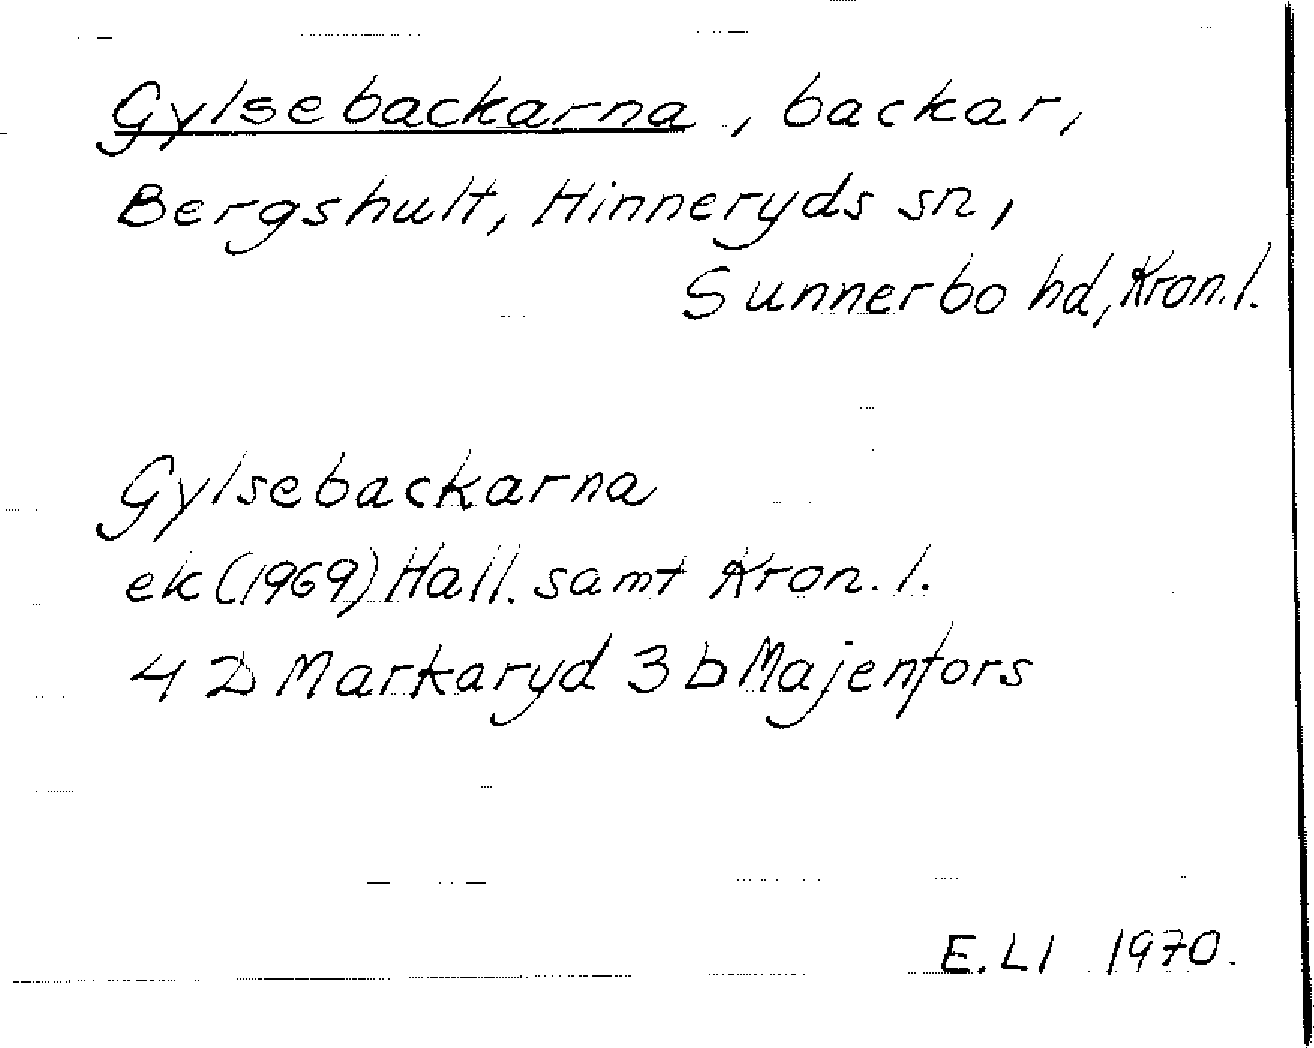 Gylsebackarna, backar,
Bergshult, Hinneryds sn,
Sunnerbo hd, Kron.l.
Gylsebackarna
ek (1969) Hall. samt Kron. l.
4 D Markaryd 3 b Majenfors
E.Ll 1970.